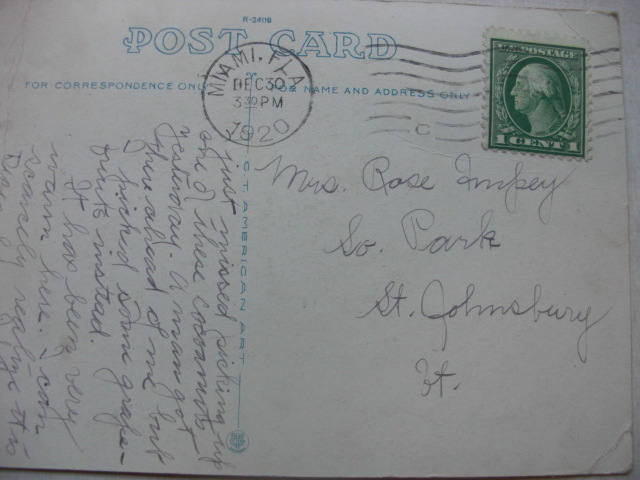 R-34118
POST CARD
FOR CORRESPONDENCE ONLY
FOR NAME AND ADDRESS ONLY
MIAMI, FLA.
DEC 30
3 30 PM
1920
U.S. POSTAGE
1 CENT 1
Mrs. Rose Impey
So. Park
St. Johnsbury
Vt.
just missed picking up
one of these cocoanuts
yesterday. A man got
there ahead of me but
I picked some grape-
fruits instead.
It has been very
warm here. I can
scarcely realize it is
AMERICAN ART